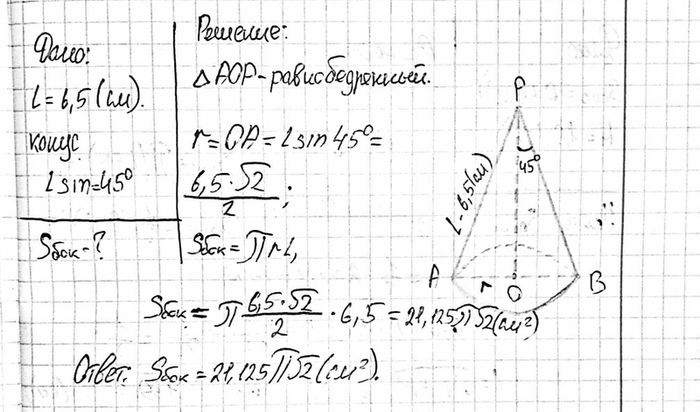 Дано:
L = 6,5 (см).
конус
L sin = 45°
Sбок - ?
Решение:
△ AOP - равнобедренный.
r = OA = L sin 45° =
6,5 · √2 / 2 ;
Sбок = π r L,
Sбок = π 6,5 · √2 / 2 · 6,5 = 21,125 π √2 (см²)
Ответ: Sбок = 21,125 π √2 (см²).
P
45°
L - 6,5 (см)
A
r
O
B